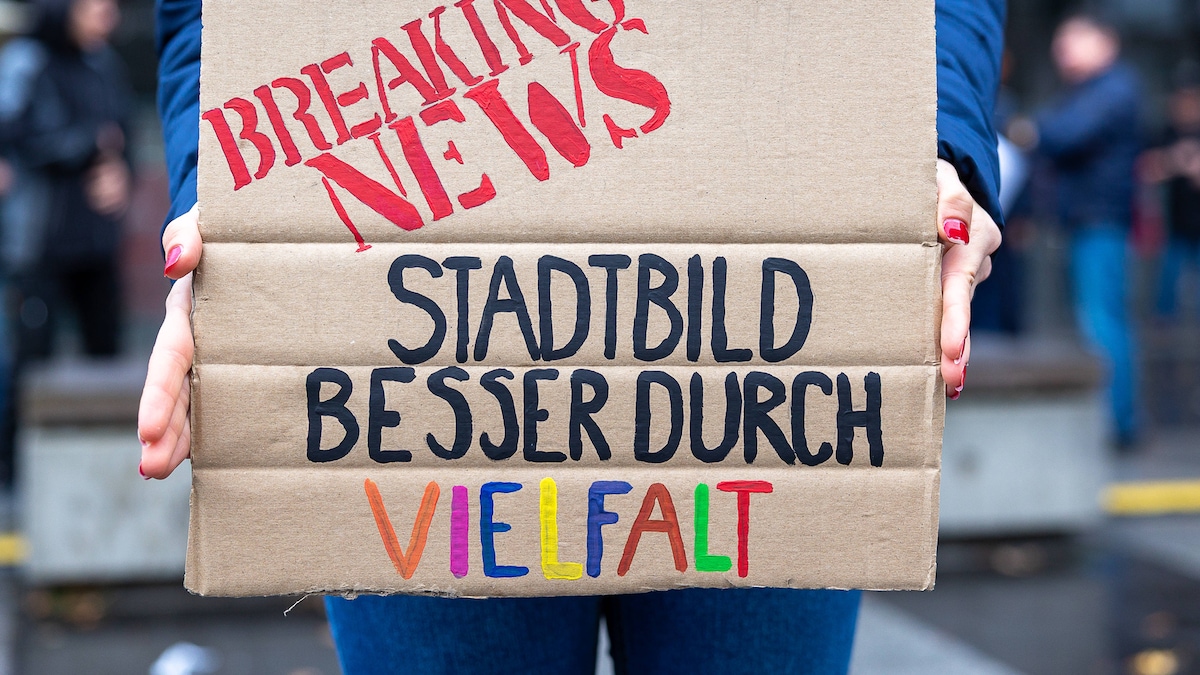 BREAKING
NEWS
STADTBILD
BESSER DURCH
VIELFALT